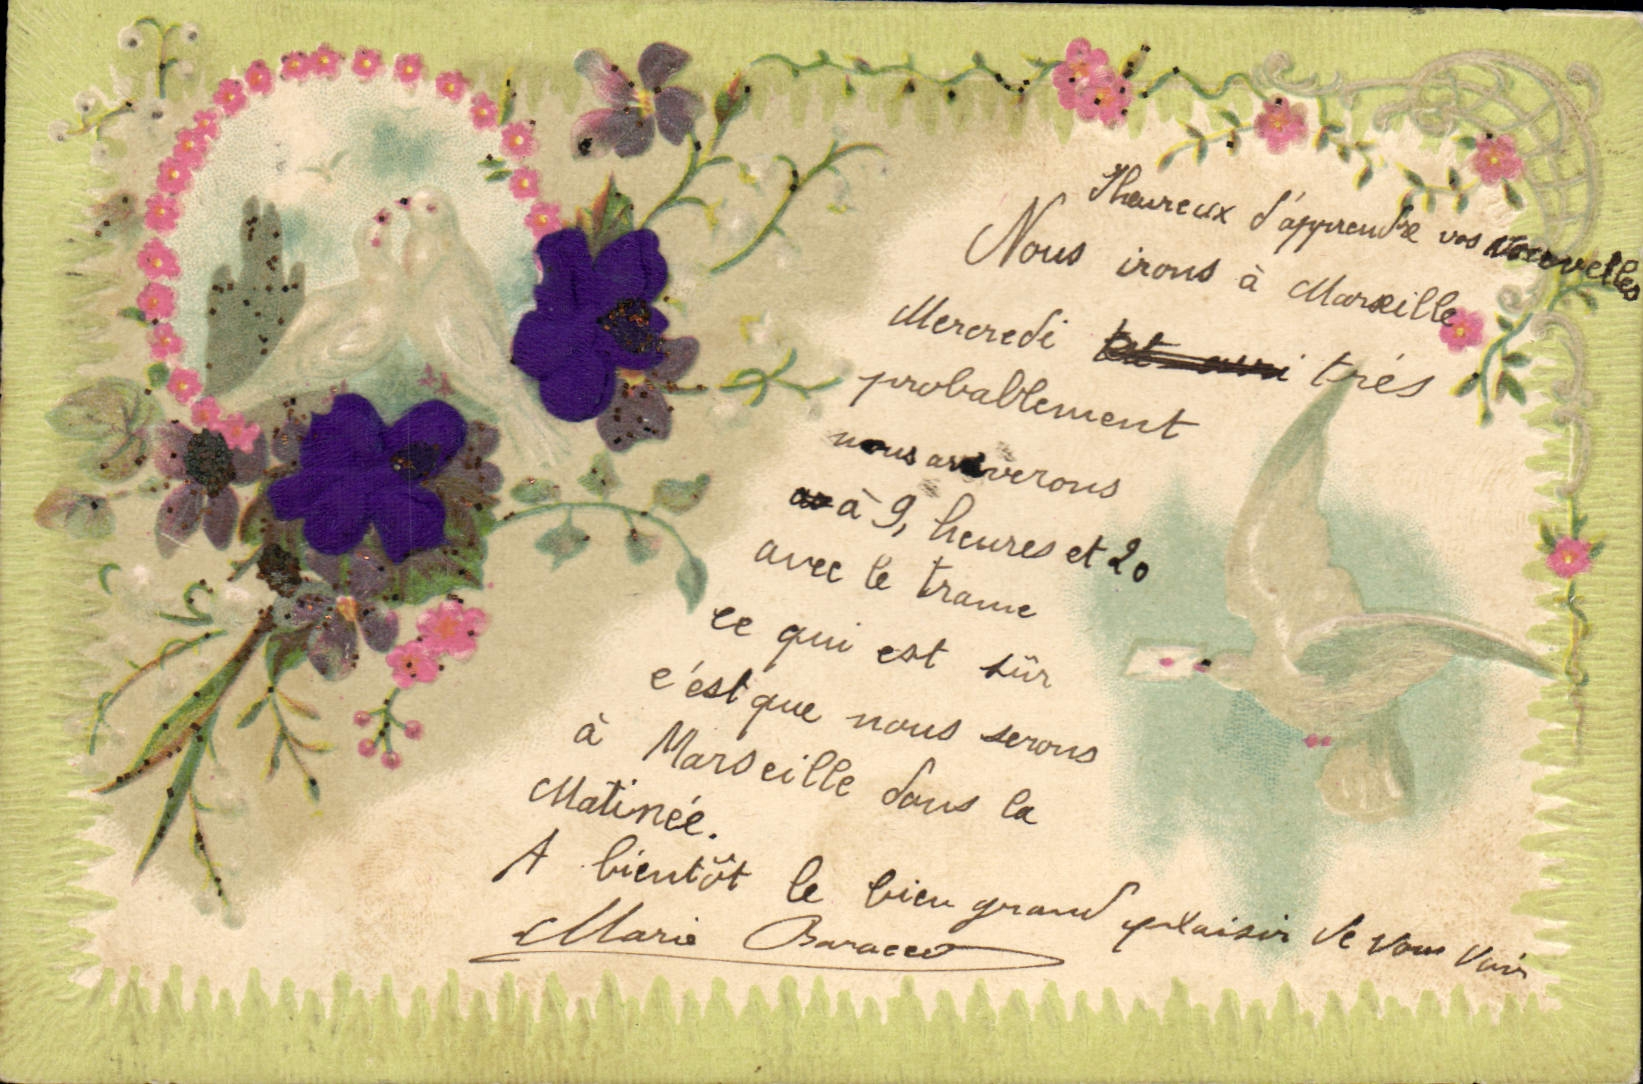 Heureux d'apprendre vos nouvelles
Nous irons à Marseille
Mercredi très
probablement
nous arriverons
à 9, heures et 20
avec le trame
ce qui est sûr
c'est que nous serons
à Marseille dans la
Matinée.
A bientôt le bien grand plaisir de vous voir
Marie